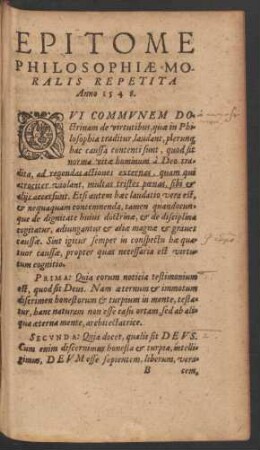 EPITOME
PHILOSOPHIÆ MO-
RALIS REPETITA
Anno 1548.
QVI COMMVNEM DO-
ctrinam de virtutibus, quæ in Phi-
losophia traditur, laudant, plerunq;
hac caussa contenti sunt, quod sit
norma vitæ hominum à Deo tra-
dita, ad regendas actiones externas, quam qui
atrociter violant, multas tristes pœnas, sibi &
alijs accersunt. Etsi autem hæc laudatio vera est,
& nequaquam contemnenda, tamen quandocun-
que de dignitate huius doctrinæ, & de disciplina
cogitatur, adiungantur & aliæ magnæ & graues
caussæ. Sint igitur semper in conspectu hæ qua-
tuor caussæ, propter quas necessaria est virtu-
tum cognitio.
PRIMA: Quia eorum noticia testimonium
est, quod sit Deus. Nam æternum & immotum
discrimen honestorum & turpium in mente, testa-
tur, hanc naturam non esse casu ortam, sed ab ali-
qua æterna mente, architectatrice.
SECVNDA: Quia docet, qualis sit DEVS.
Cum enim discernimus honesta & turpia, intelli-
gimus, DEVM esse sapientem, liberum, vera-
B cem,